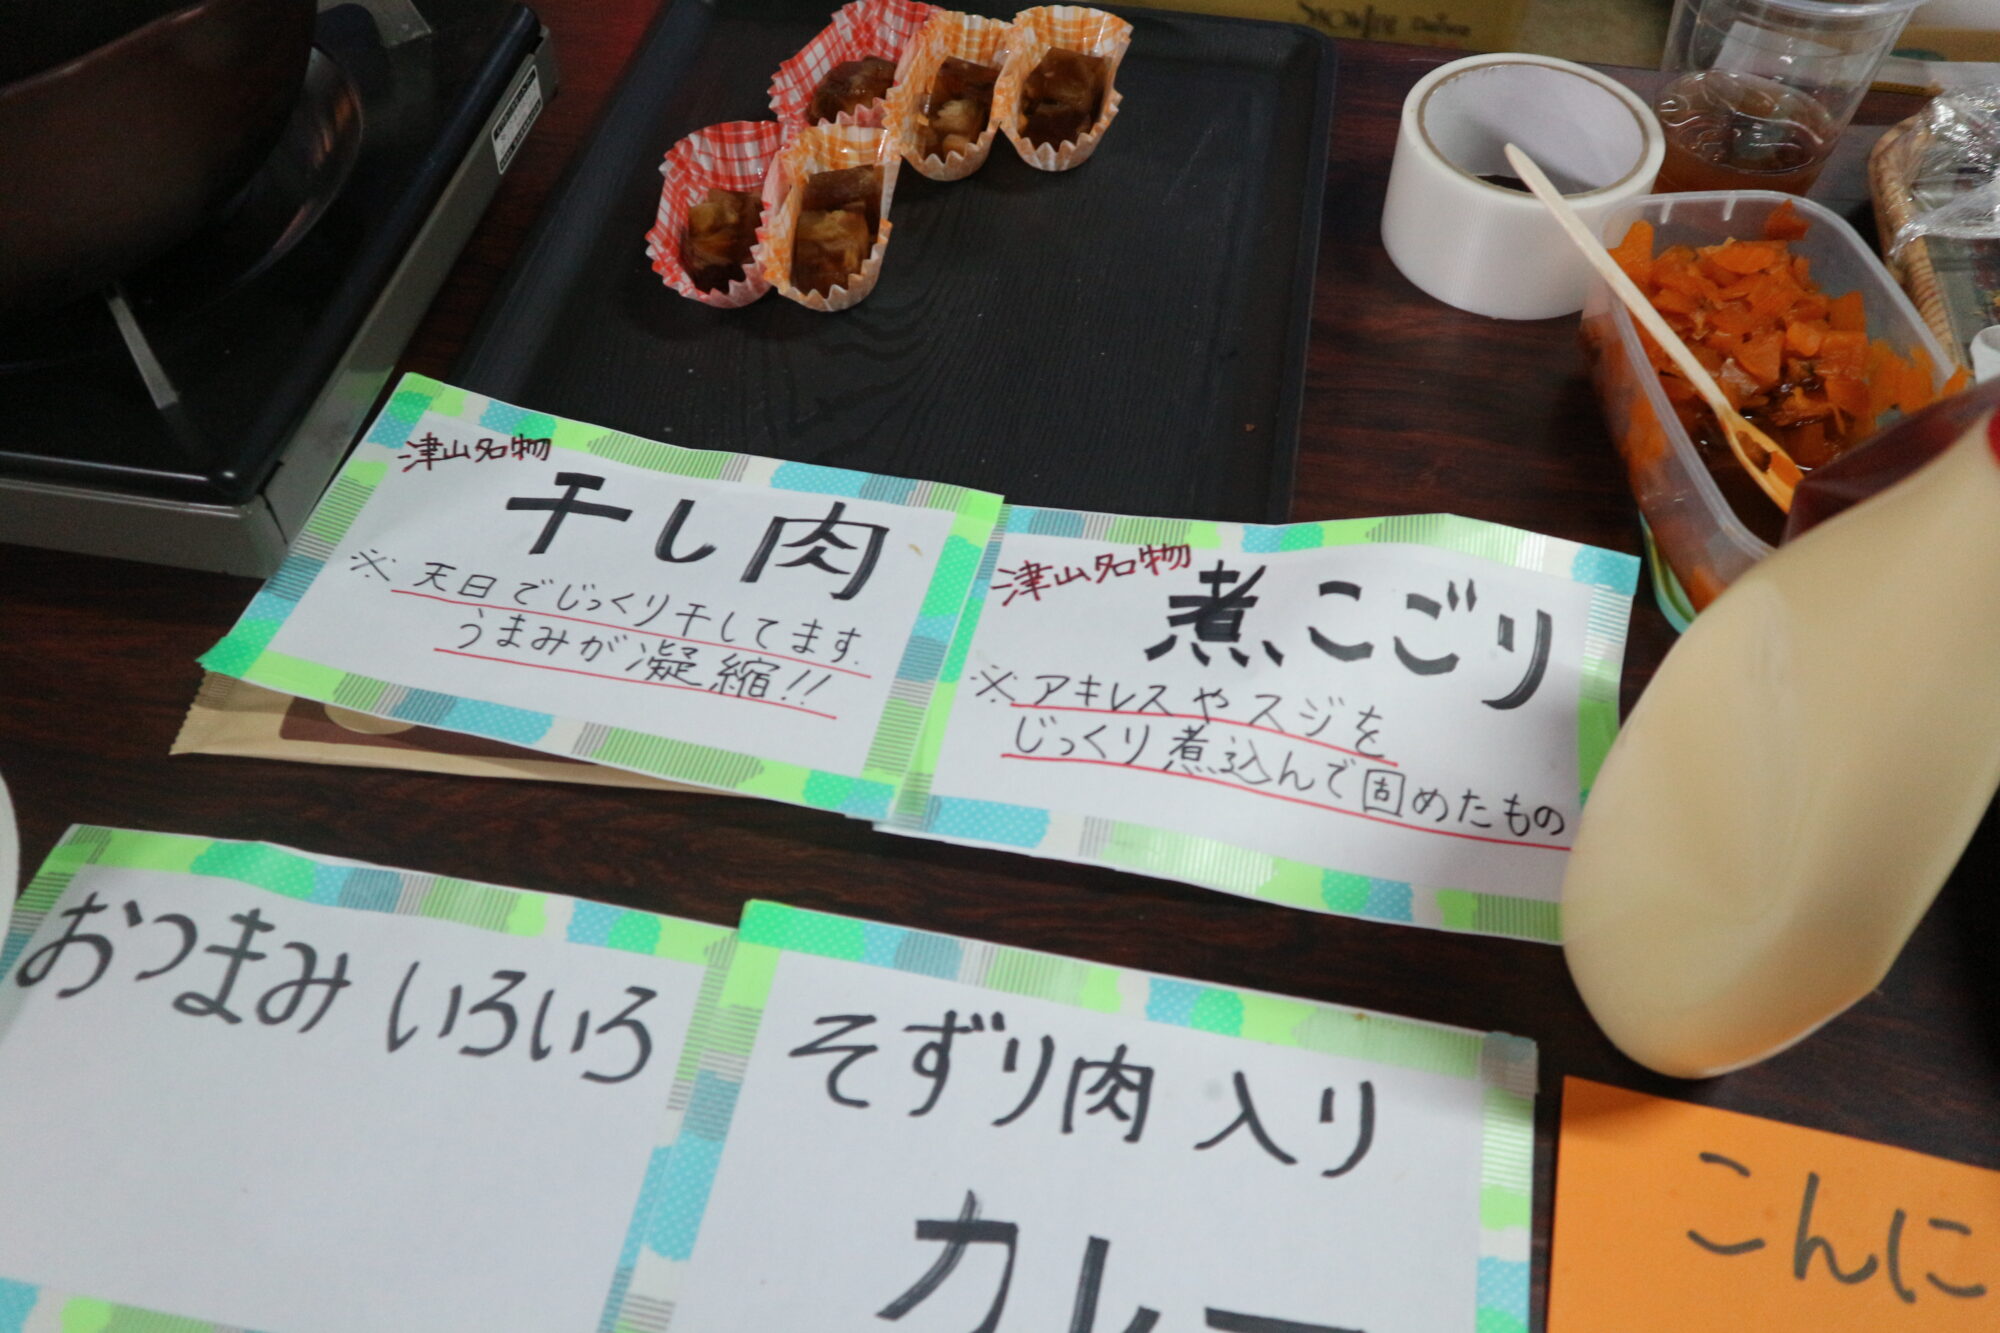 津山名物
干し肉
※ 天日でじっくり干してます.
うまみが凝縮!!
津山名物
煮こごり
※ アキレスやスジを
じっくり煮込んで固めたもの
おつまみ いろいろ
そずり肉 入り
カレー
こんに